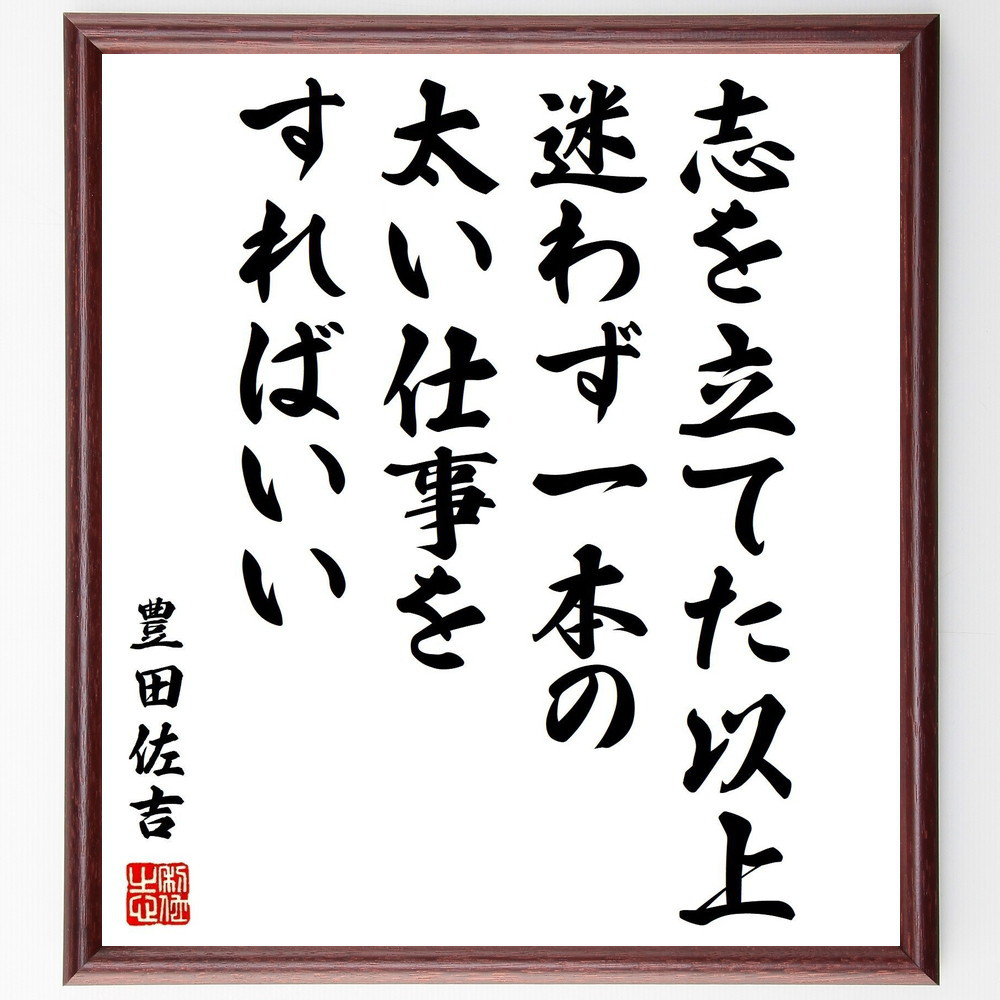 志を立てた以上
迷わず一本の
太い仕事を
すればいい
豊田佐吉